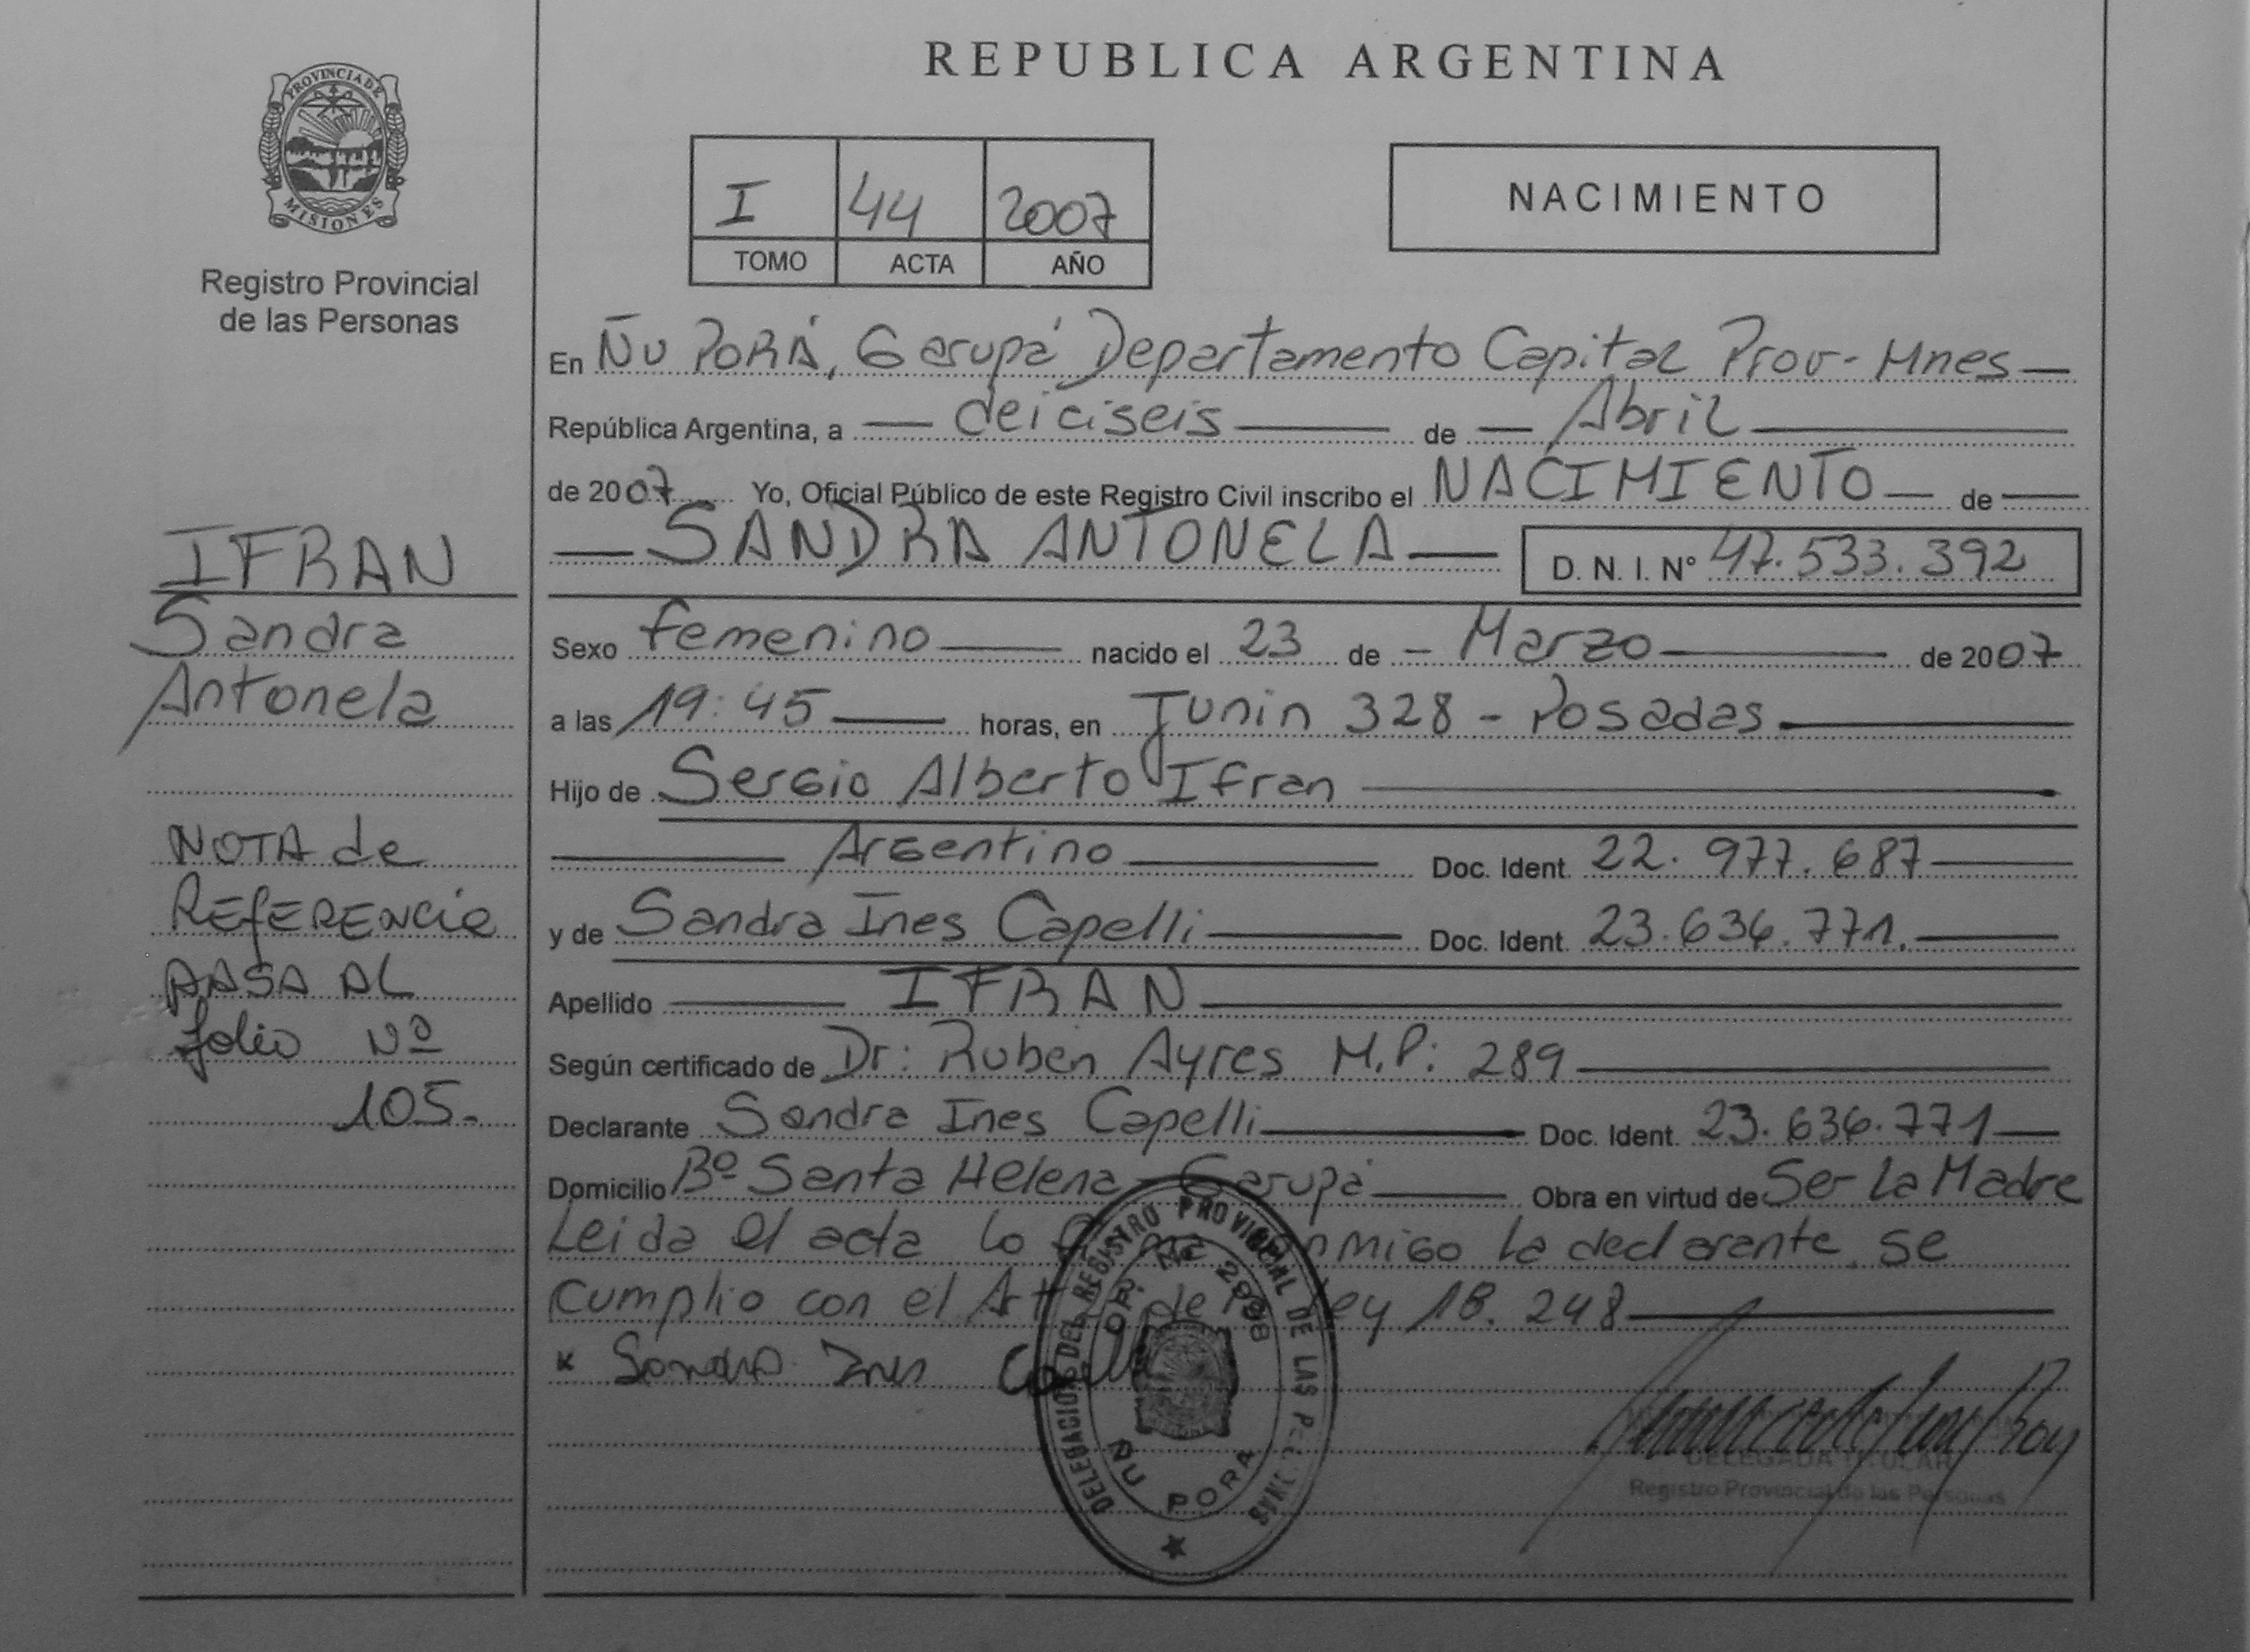 REPUBLICA ARGENTINA
PROVINCIA DE
MISIONES
Registro Provincial
de las Personas
I 44 2007
TOMO ACTA AÑO
NACIMIENTO
En Ñu PORÁ, Garupá Departamento Capital Prov- Mnes
República Argentina, a deiciseis de Abril
de 2007 Yo, Oficial Público de este Registro Civil inscribo el NACIMIENTO de
SANDRA ANTONELA D. N. I. N° 47.533.392
Sexo femenino nacido el 23 de - Marzo de 2007
a las 19:45 horas, en Junin 328 - Posadas
Hijo de Sergio Alberto Ifran
Argentino Doc. Ident. 22.977.687
y de Sandra Ines Capelli Doc. Ident. 23.636.771.
Apellido IFRAN
Según certificado de Dr: Ruben Ayres M.P: 289
Declarante Sandra Ines Capelli Doc. Ident. 23.636.771
Domicilio Bº Santa Helena - Garupá Obra en virtud de Ser La Madre
Leida el acta lo conmigo la declarante, se
cumplio con el Art de Ley 18.248
x Sandra Ines Capelli
IFRAN
Sandra
Antonela
NOTA de
REfERENcia
PASA AL
folio Nº
105.
DELEGACION DEL REGISTRO PROVINCIAL DE LAS PERSONAS
OR. Nº 2998
ÑU PORA
DELEGADA TITULAR
Registro Provincial de las Personas